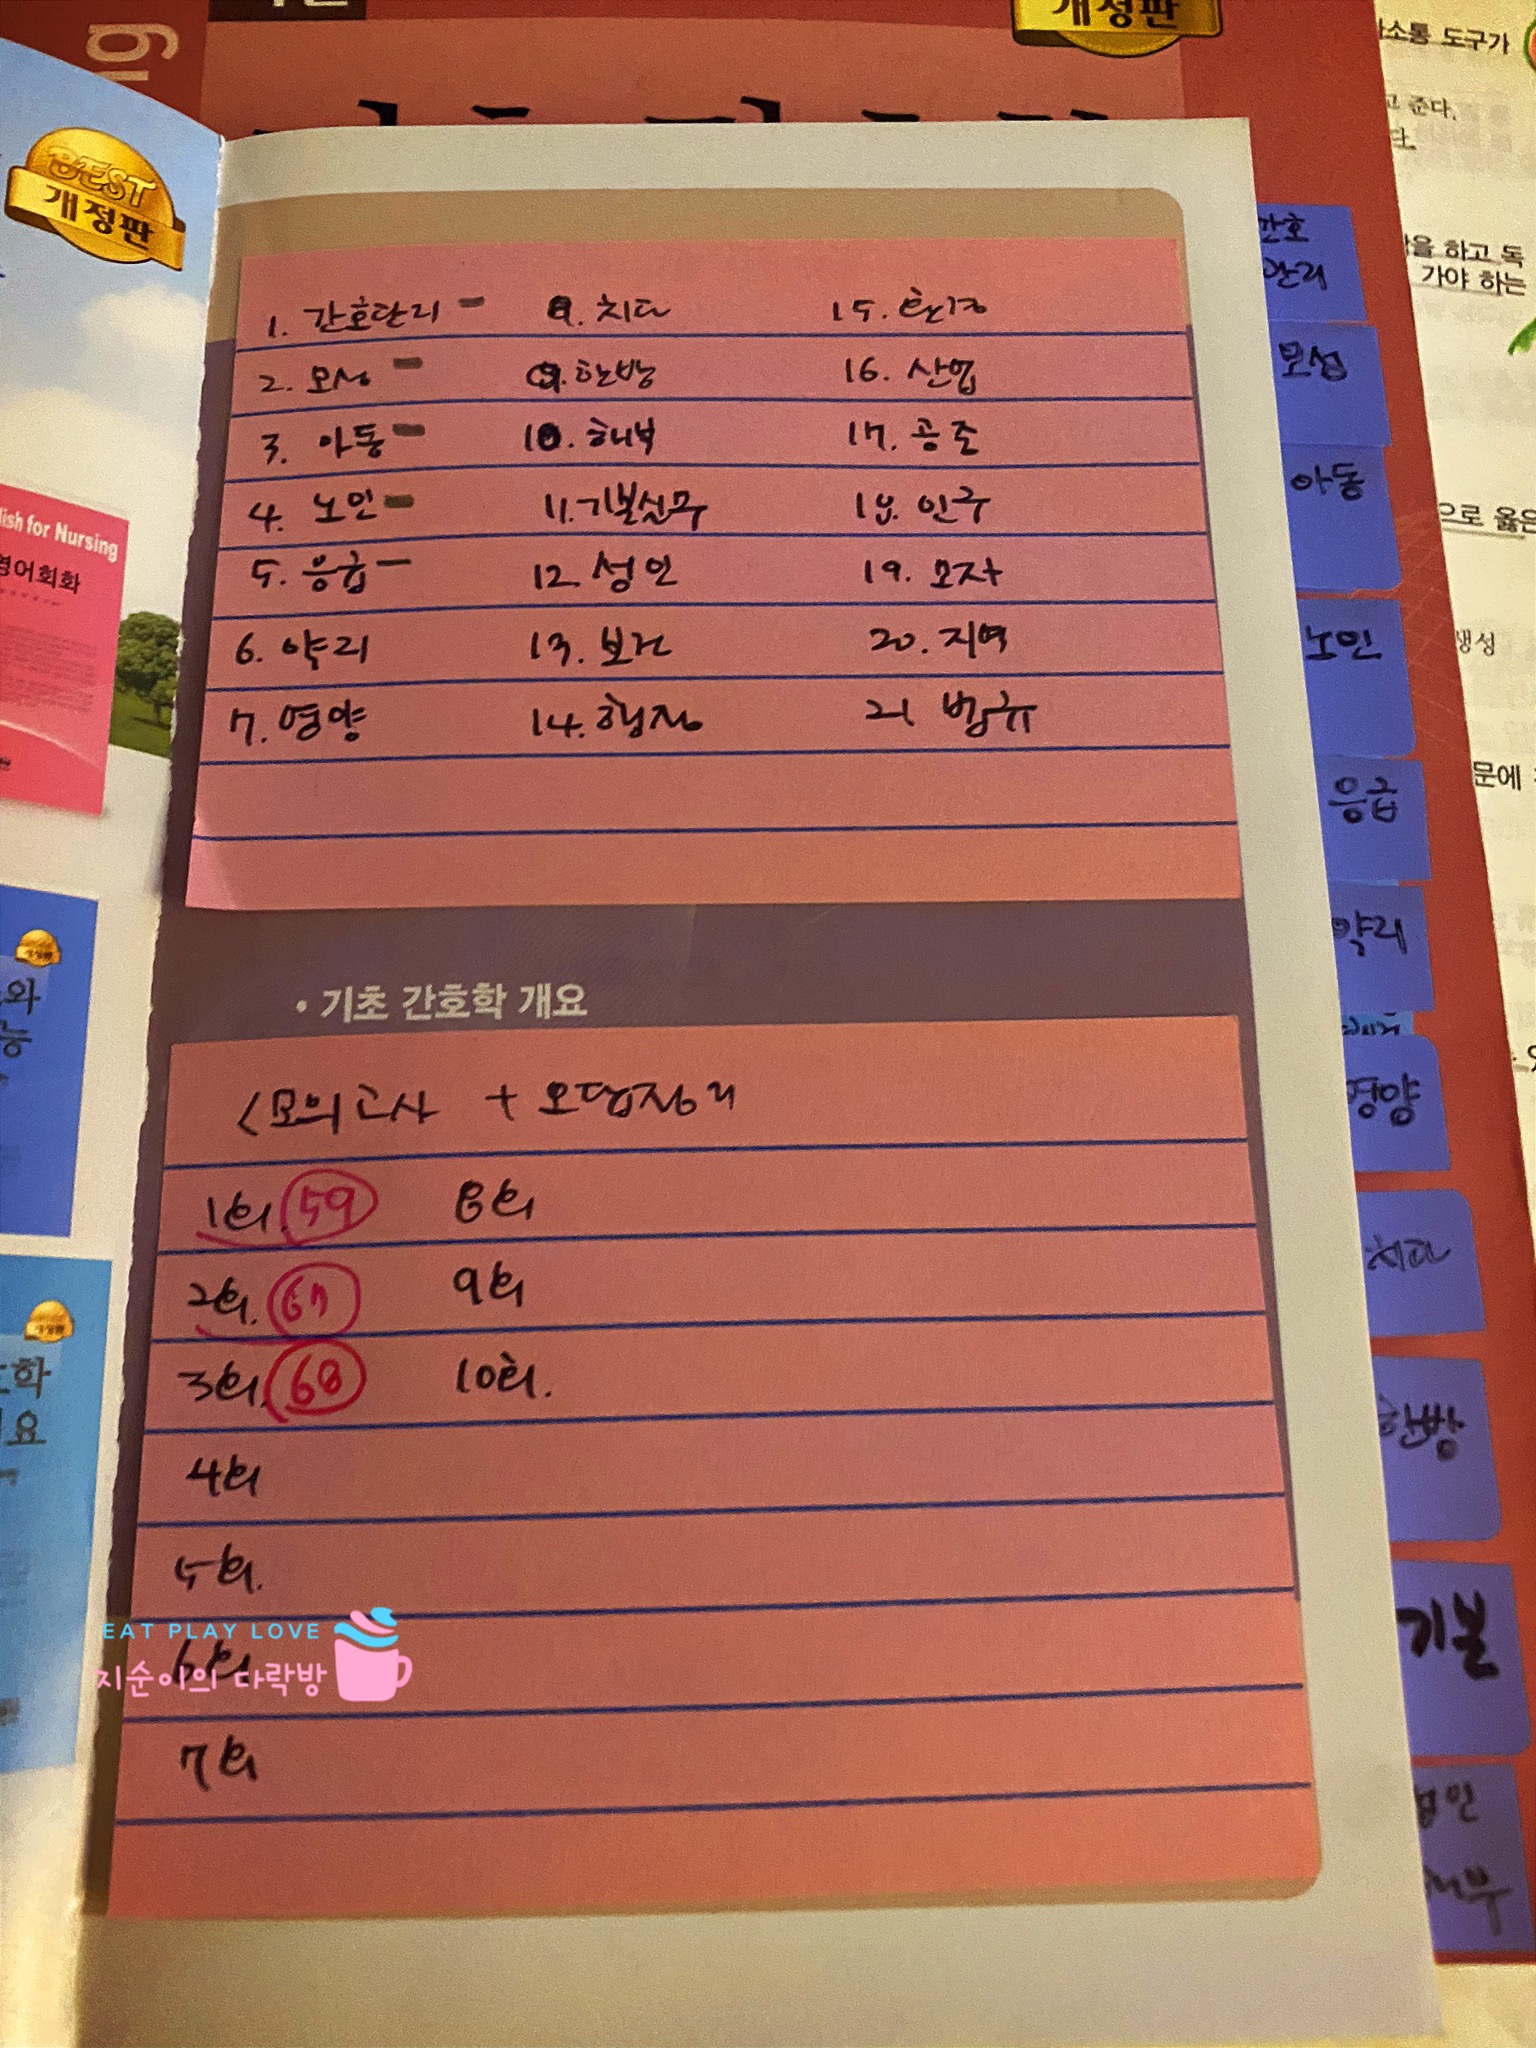 개정판
BEST
개정판
1. 간호관리 - 8. 치과 15. 환경
2. 모성 - 9. 한방 16. 산업
3. 아동 - 10. 해부 17. 공중
4. 노인 - 11. 기본실무 18. 인구
5. 응급 - 12. 성인 19. 모자
6. 약리 13. 보건 20. 지역
7. 영양 14. 행정 21 법규
• 기초 간호학 개요
<모의고사 + 오답정리
1회. 59 8회
2회. 67 9회
3회. 68 10회.
4회
5회.
6회
7회
EAT PLAY LOVE
지순이의 다락방
lish for Nursing
영어회화
간호
관리
모성
아동
노인
응급
약리
영양
치과
한방
기본
성인
해부
소통 도구가
고 준다.
을 하고 독
가야 하는
으로 옳은
생성
문에